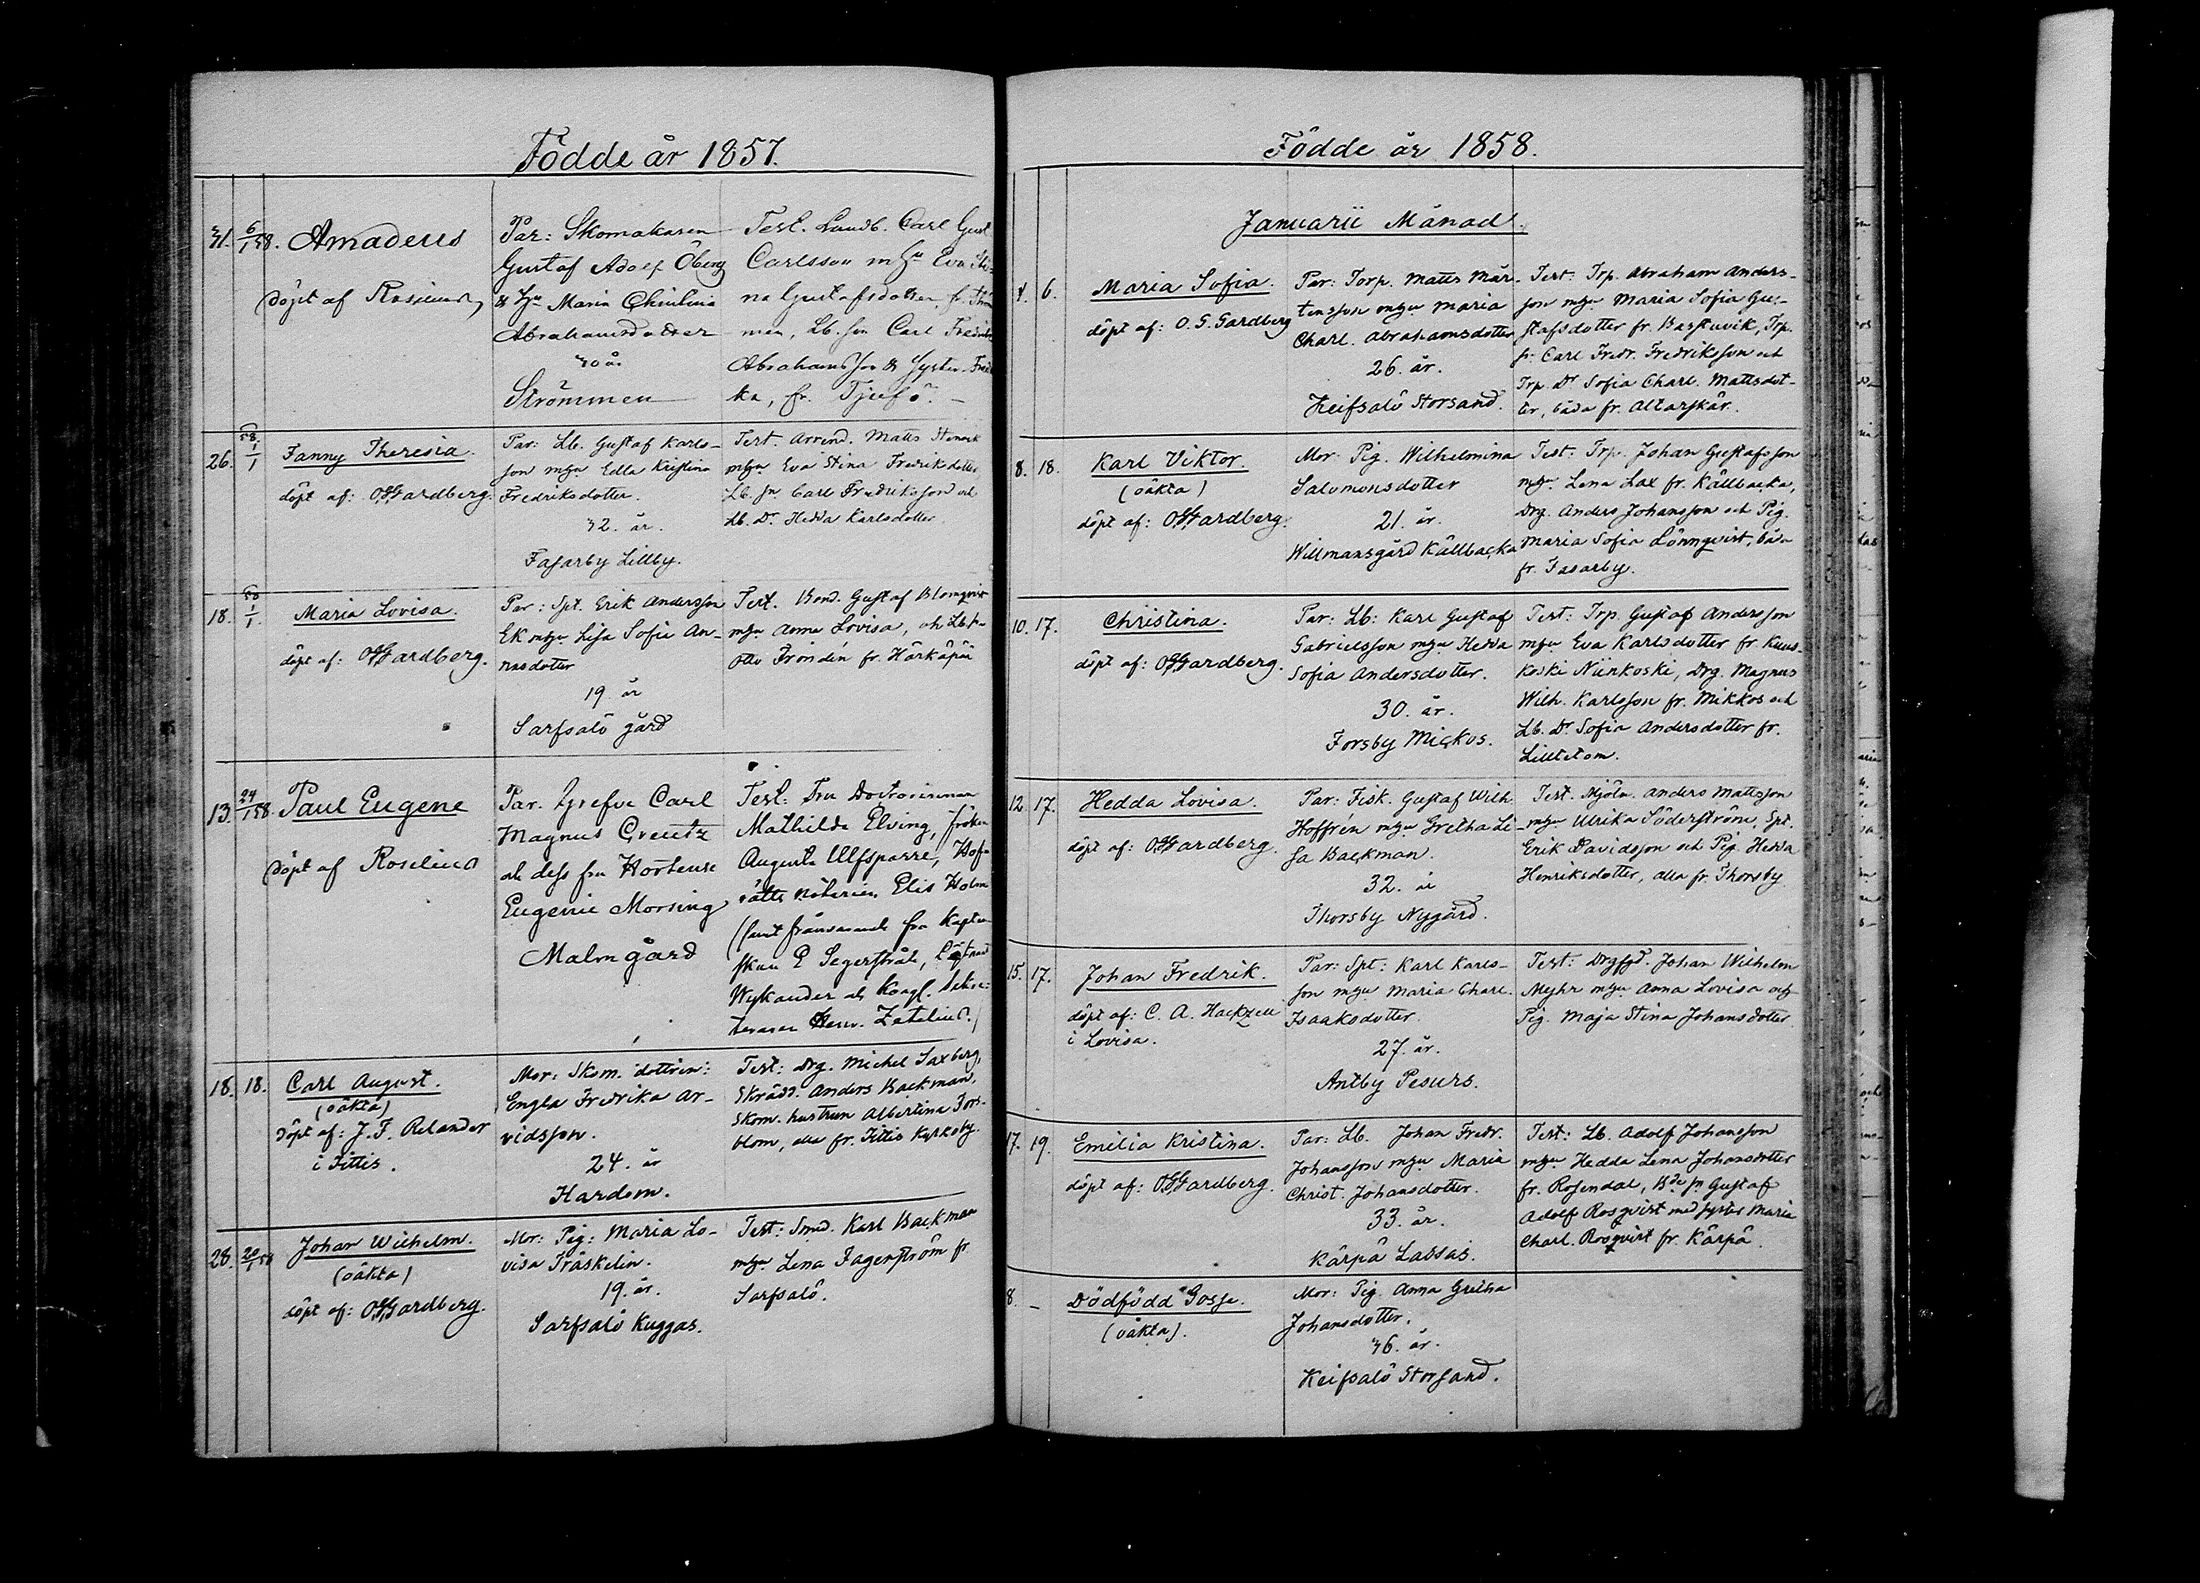 Födde år 1857.
31. 6/1 58. Amadeus
döpt af Roselius
Par: Skomakaren
Gustaf Adolf Öberg
& Hu Maria Chirlina
Abrahamsdotter
30 år
Strömmen
Test. Landb. Carl Gust
Carlsson m hu Eva Sti-
na Gustafsdotter, fr.
men, Lb. son Carl Fredrik
Abrahamsson & Syster
ka, fr. Tjufö.
26. 58 1/1 Fanny Theresia.
döpt af: O.G. Gardberg.
Par: Lb. Gustaf Karls-
son mhu Edla Kristina
Fredriksdotter.
32. år.
Fasarby Lillby.
Test. Arrend. Matts
mhu Eva Stina Fredriksdotter
Lb. sn Carl Fredriksson och
Lb. Dr Hedda Karlsdotter
18. 58 1/1. Maria Lovisa.
döpt af: O.G. Gardberg.
Par: Spt. Erik Andersson
Ek mhu Lisa Sofia An-
nasdotter
19 år
Sarfsalö gård
Test. Bond. Gustaf Blomqvist
mhu Anna Lovisa, och
Otto Frondén fr. Härkäpää
13. 24/1 58. Paul Eugene
döpt af Roselius
Par. Grefve Carl
Magnus Creutz
och dess fru Hortense
Eugenie Morsing
Malmgård
Test: Fru Doctorinnan
Mathilda Elving, fröken
Augusta Ulfsparre, Hof-
rätts nötarien Elis Holm
(samt frånvarande fru Kapten-
skan E Segerstråle, Löjtnant
Wykander och Kongl. Sekre-
teraren Herr.
18. 18. Carl August.
(oäkta)
döpt af: J. F. Relander
i Tittis.
Mor: Skom. dottren:
Engla Fredrika Ar-
vidsson.
24. år
Hardom.
Test: Drg. Michel Saxberg,
Skrädd. Anders Backman,
Skom. hustrun Albertina Fors-
blom, alla fr. Tittis Kyrkoby.
28. 20/1 58 Johan Wilhelm.
(oäkta)
döpt af: O.G. Gardberg.
Mor: Pig: Maria Lo-
visa Träskelin.
19. år.
Sarfsalö Kuggas.
Test: Smed. Karl Backman
mhu Lena Fagerström fr
Sarfsalö.
Födde år 1858.
Januarii Månad.
4. 6. Maria Sofia.
döpt af: O. G. Gardberg
Par: Torp. Matts Mår-
tensson mhu Maria
Charl. Abrahamsdotter
26. år.
Keifsalö Storsand.
Test: Trp. Abraham Anders-
son mhu Maria Sofia Gu-
stafsdotter fr. Bastuvik, Trp.
sn Carl Fredr. Fredriksson och
Trp. Dr Sofia Charl. Mattsdot-
ter, båda fr. Altarskär.
8. 18. Karl Viktor.
(oäkta)
döpt af: O.G. Gardberg.
Mor: Pig. Wilhelmina
Salomonsdotter
21. år.
Willmansgård Källbacka
Test: Trp. Johan Gustafsson
mhu Lena Lax fr. Källbacka,
Drg. Anders Johansson och Pig.
Maria Sofia Lönnqvist, båda
fr. Fasarby.
10. 17. Christina.
döpt af: O.G. Gardberg.
Par: Lb: Karl Gustaf
Gabrielsson mhu Hedda
Sofia Andersdotter.
30. år.
Forsby Mickos.
Test: Trp. Gustaf Andersson
mhu Eva Karlsdotter fr. Kuus-
koski Niinkoski, Drg. Magnus
Wilh. Karlsson fr. Mikkos och
Lb. Dr Sofia Andersdotter fr.
Lilltetom.
12. 17. Hedda Lovisa.
döpt af: O.G. Gardberg.
Par: Fisk. Gustaf Wilh.
Hoffrén mhu Gretha Li-
sa Backman.
32. år
Thorsby Nygård.
Test. Mjöln. Anders Mattsson
mhu Ulrika Söderström, Spt.
Erik Davidsson och Pig. Hedda
Henriksdotter, alla fr. Thorsby
15. 17. Johan Fredrik.
döpt af: C. A. Hackzell
i Lovisa.
Par: Spt: Karl Karls-
son mhu Maria Charl.
Isaaksdotter.
27. år.
Antby Pesurs.
Test: Drgfgd. Johan Wilhelm
Myhr mhu Anna Lovisa och
Pig. Maja Stina Johansdotter
17. 19. Emilia Kristina.
döpt af: O.G. Gardberg.
Par: Lb. Johan Fredr.
Johansson mhu Maria
Christ. Johansdotter.
33. år.
Kärpä Lassas.
Test: Lb. Adolf Johansson
mhu Hedda Lena Johansdotter
fr. Rosendal, Bde sn Gustaf
Adolf Rosqvist med syster Maria
Charl. Rosqvist fr. Kärpä.
8. - Dödfödd Gosse.
(oäkta).
Mor: Pig. Anna Gretha
Johansdotter.
36. år.
Keifsalö Storsand.